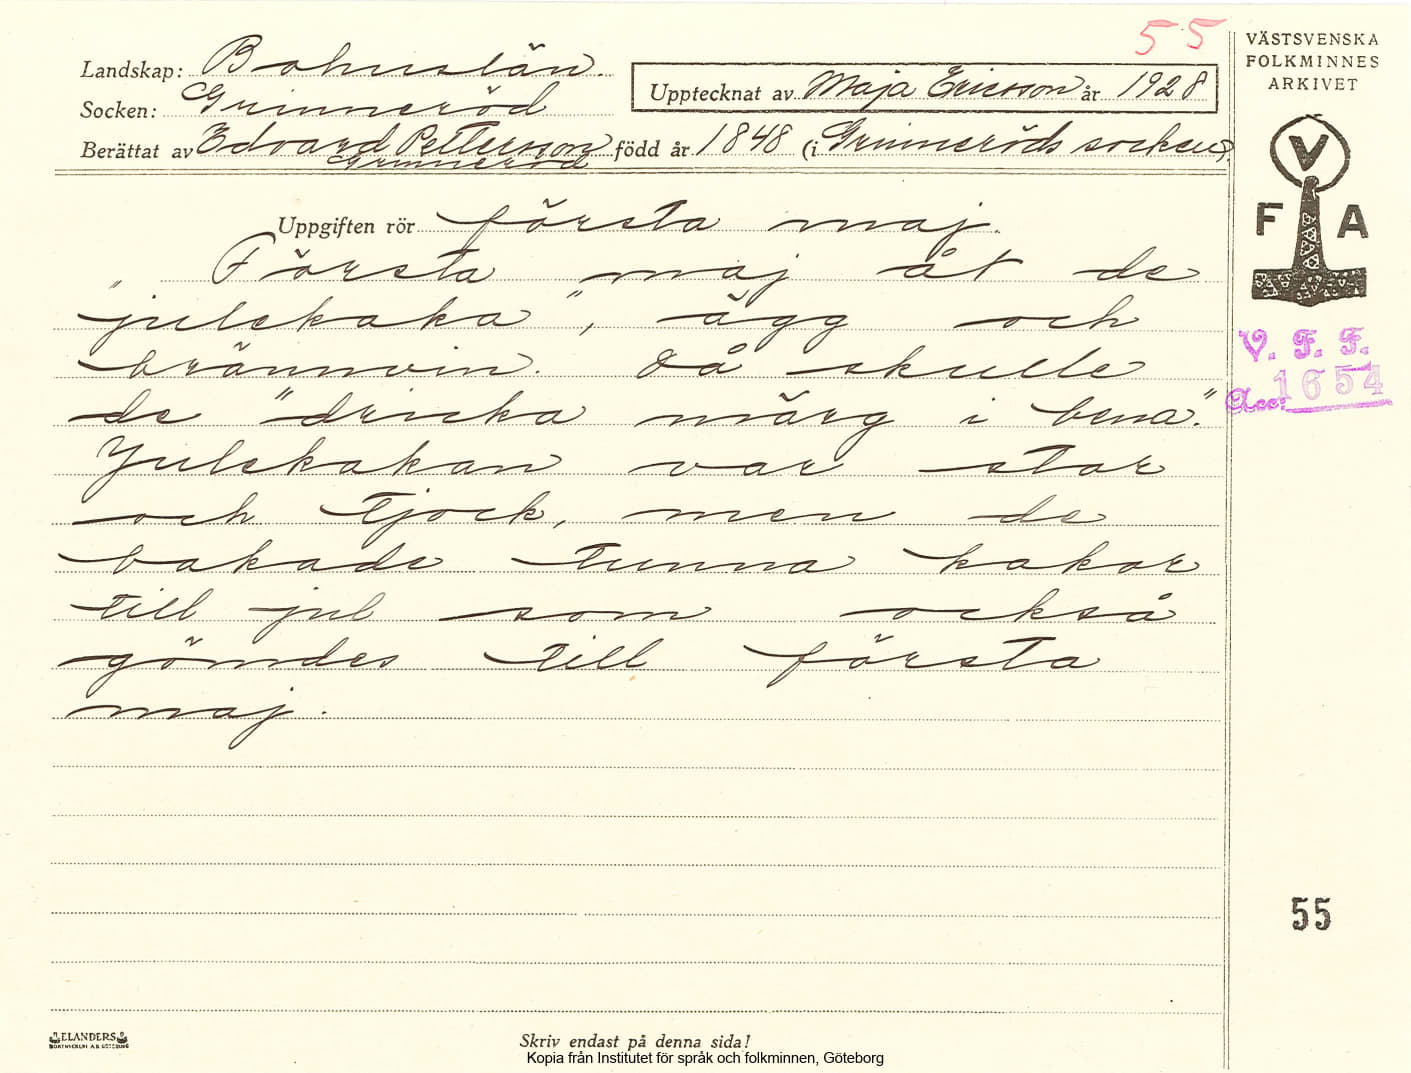 55
VÄSTSVENSKA
FOLKMINNES
ARKIVET
Landskap: Bohuslän.
Socken: Grinneröd
Upptecknat av Maja Ericsson år 1928
Berättat av Edvard Pettersson född år 1848 (i Grinneröds socken).
Grinneröd
V
F A
Uppgiften rör första maj.
Första maj åt de
"julekaka", ägg och
brännvin. Då skulle
de "dricka märg i bena".
Julekakan var stor
och tjock, men de
bakade tunna kakor
till jul som också
gömdes till första
maj.
V. F. F.
Acc: 1654
55
ELANDERS
Skriv endast på denna sida!
Kopia från Institutet för språk och folkminnen, Göteborg